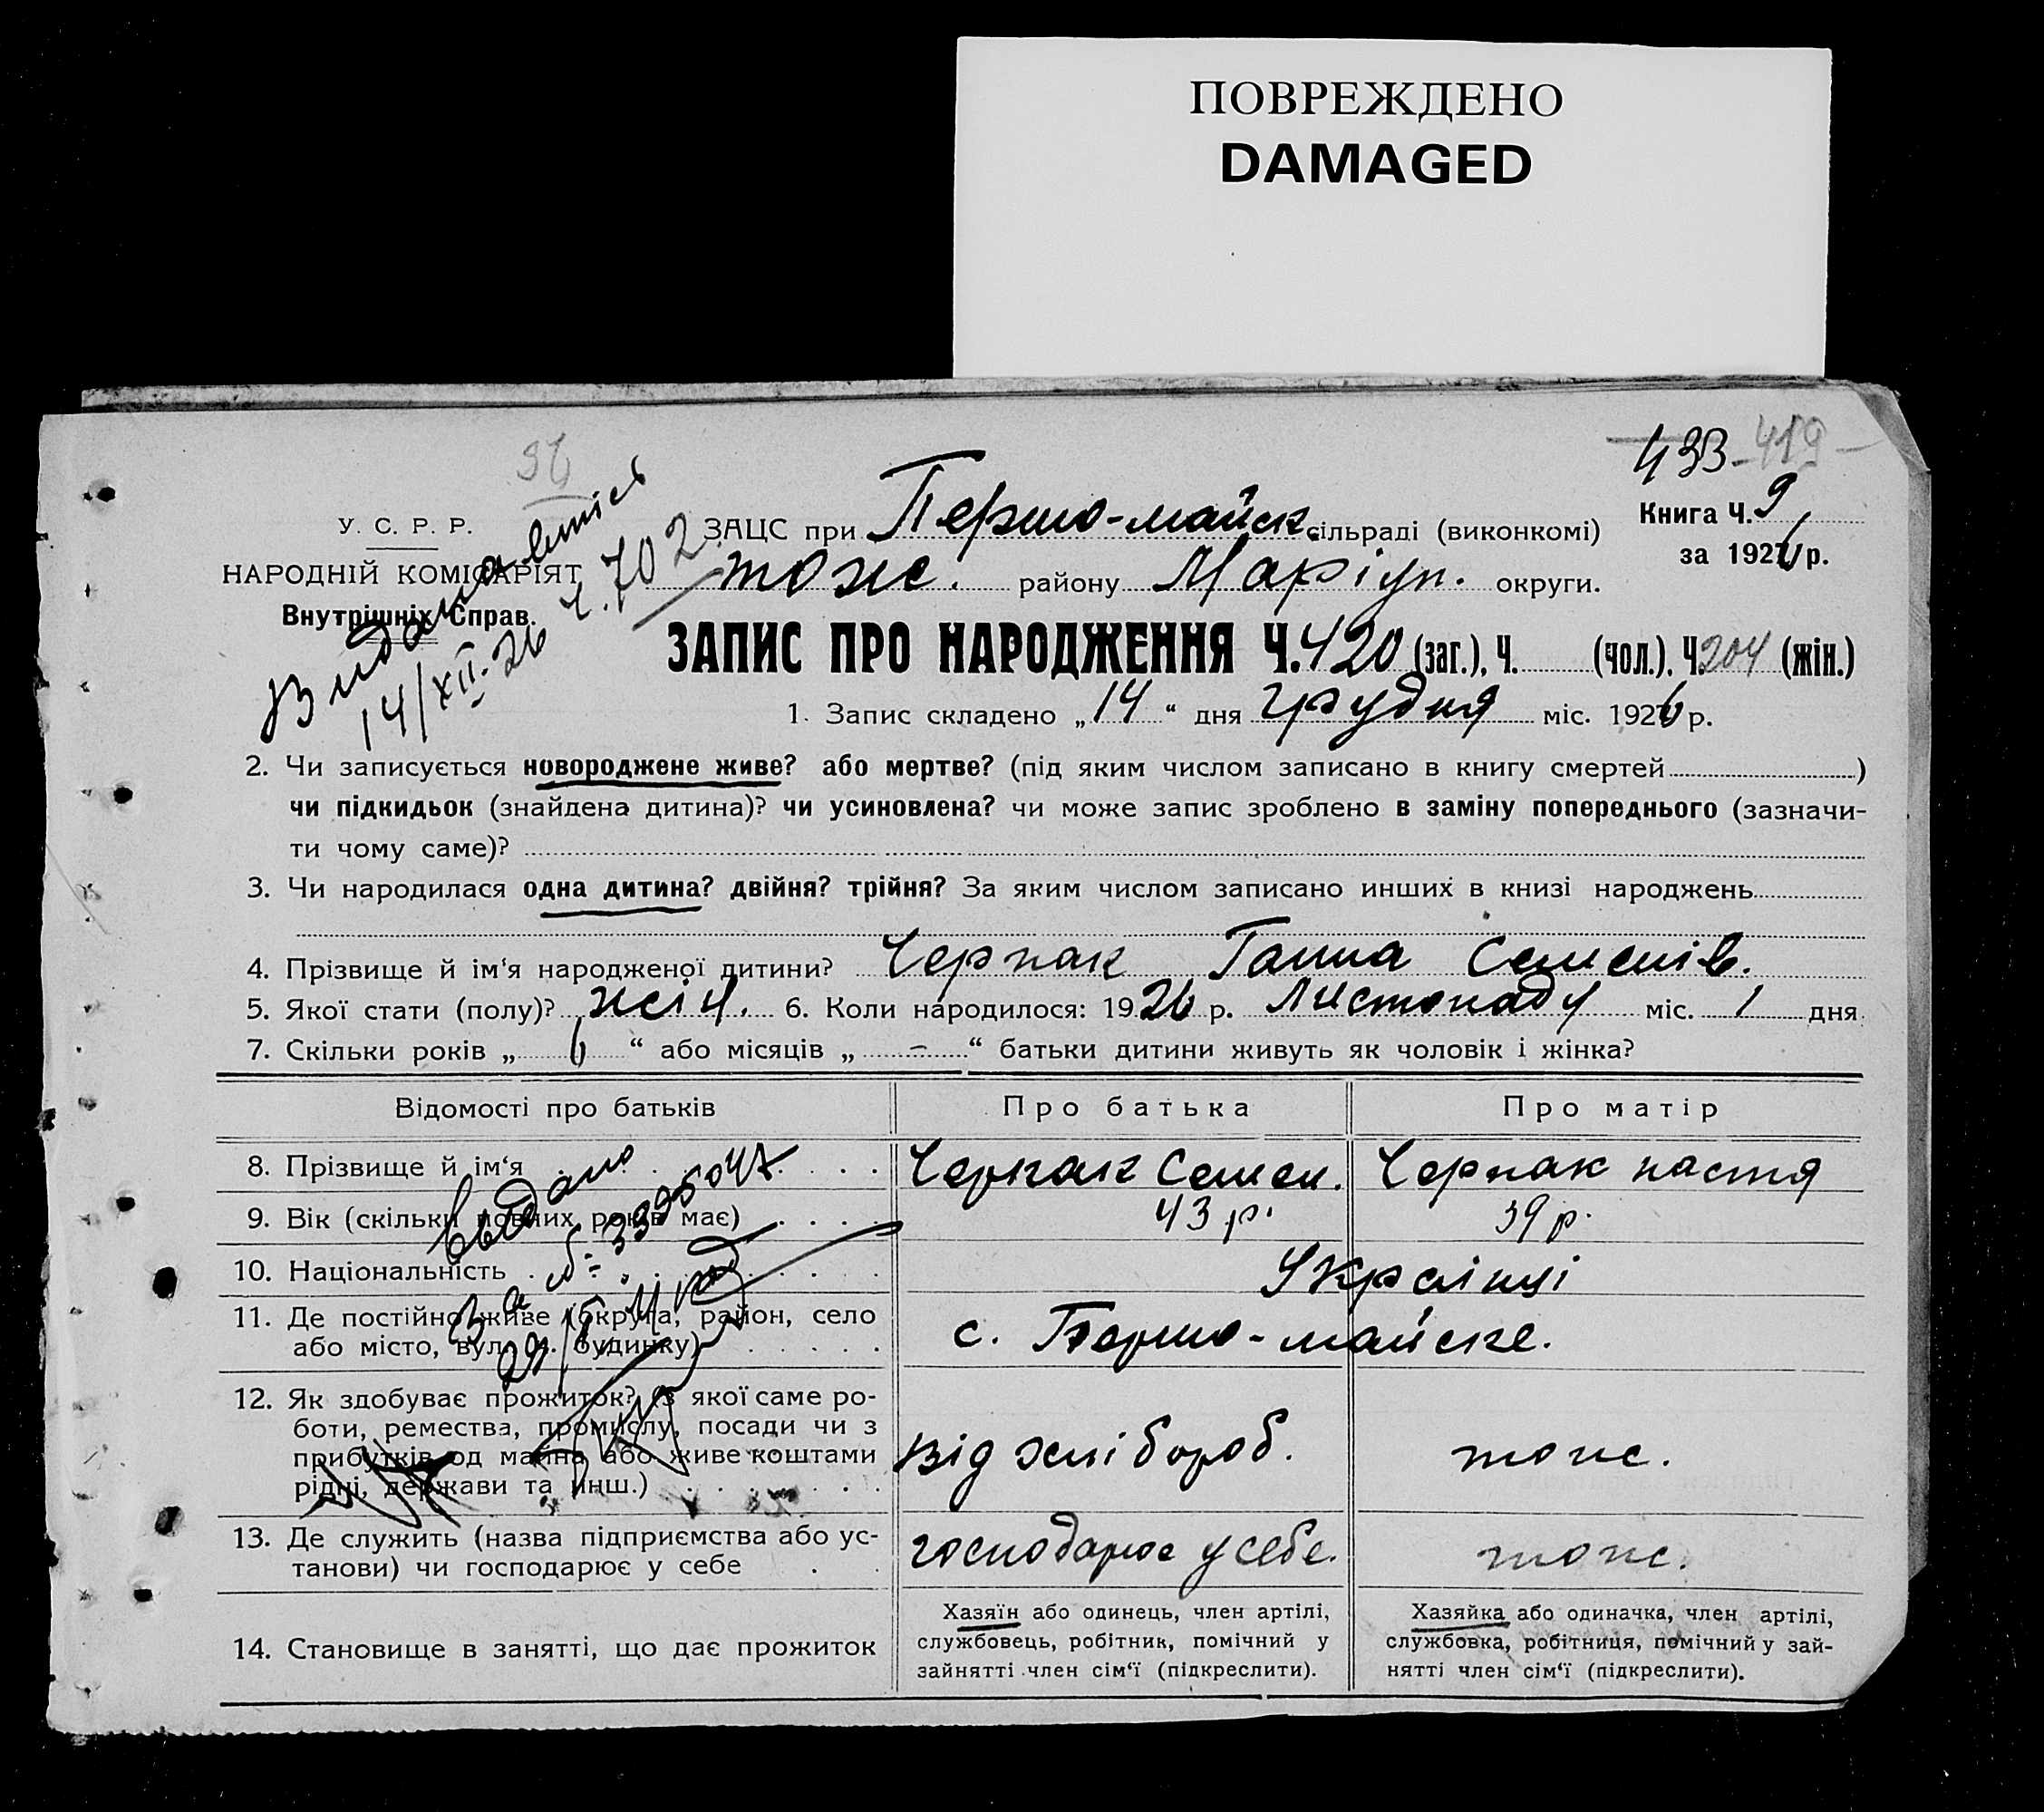 ПОВРЕЖДЕНО
DAMAGED
433 - 419 -
У. С. Р. Р.
НАРОДНІЙ КОМІСАРІЯТ
Внутрішніх Справ.
Видана витісь
14/XII-26 Ч. 702
ЗАЦС при Першо-майск. сільраді (виконкомі)
тоже. району Маріуп. округи.
Книга Ч. 9
за 1926 р.
ЗАПИС ПРО НАРОДЖЕННЯ Ч. 420 (заг.), Ч. (чол.), Ч. 204 (жін.)
1. Запис складено „14“ дня грудня міс. 1926 р.
2. Чи записується новороджене живе? або мертве? (під яким числом записано в книгу смертей )
чи підкидьок (знайдена дитина)? чи усиновлена? чи може запис зроблено в заміну попереднього (зазначи-
ти чому саме)?
3. Чи народилася одна дитина? двійня? трійня? За яким числом записано инших в книзі народжень
4. Прізвище й ім‘я народженої дитини? Черпак Ганна Семенів.
5. Якої стати (полу)? жіч. 6. Коли народилося: 1926 р. Листопаду міс. 1 дня
7. Скільки років „ 6 “ або місяців „ - “ батьки дитини живуть як чоловік і жінка?
Відомості про батьків Про батька Про матір
8. Прізвище й ім‘я Черпак Семен. Черпак настя
9. Вік (скільки повних років має) 43 р. 39 р.
10. Національність Українці
11. Де постійно живе (округа, район, село
або місто, вул. ч. будинку) с. Першо-майске.
12. Як здобуває прожиток? (з якої саме ро-
боти, ремества, промислу, посади чи з
прибутків од майна або живе коштами
рідні, держави та инш.) від хлібороб. тоже.
13. Де служить (назва підприємства або ус-
танови) чи господарює у себе господарює у себе. тоже.
14. Становище в занятті, що дає прожиток
Хазяїн або одинець, член артілі,
службовець, робітник, помічний у
зайнятті член сім‘ї (підкреслити).
Хазяйка або одиначка, член артілі,
службовка, робітниця, помічний у зай-
нятті член сім‘ї (підкреслити).
выдано